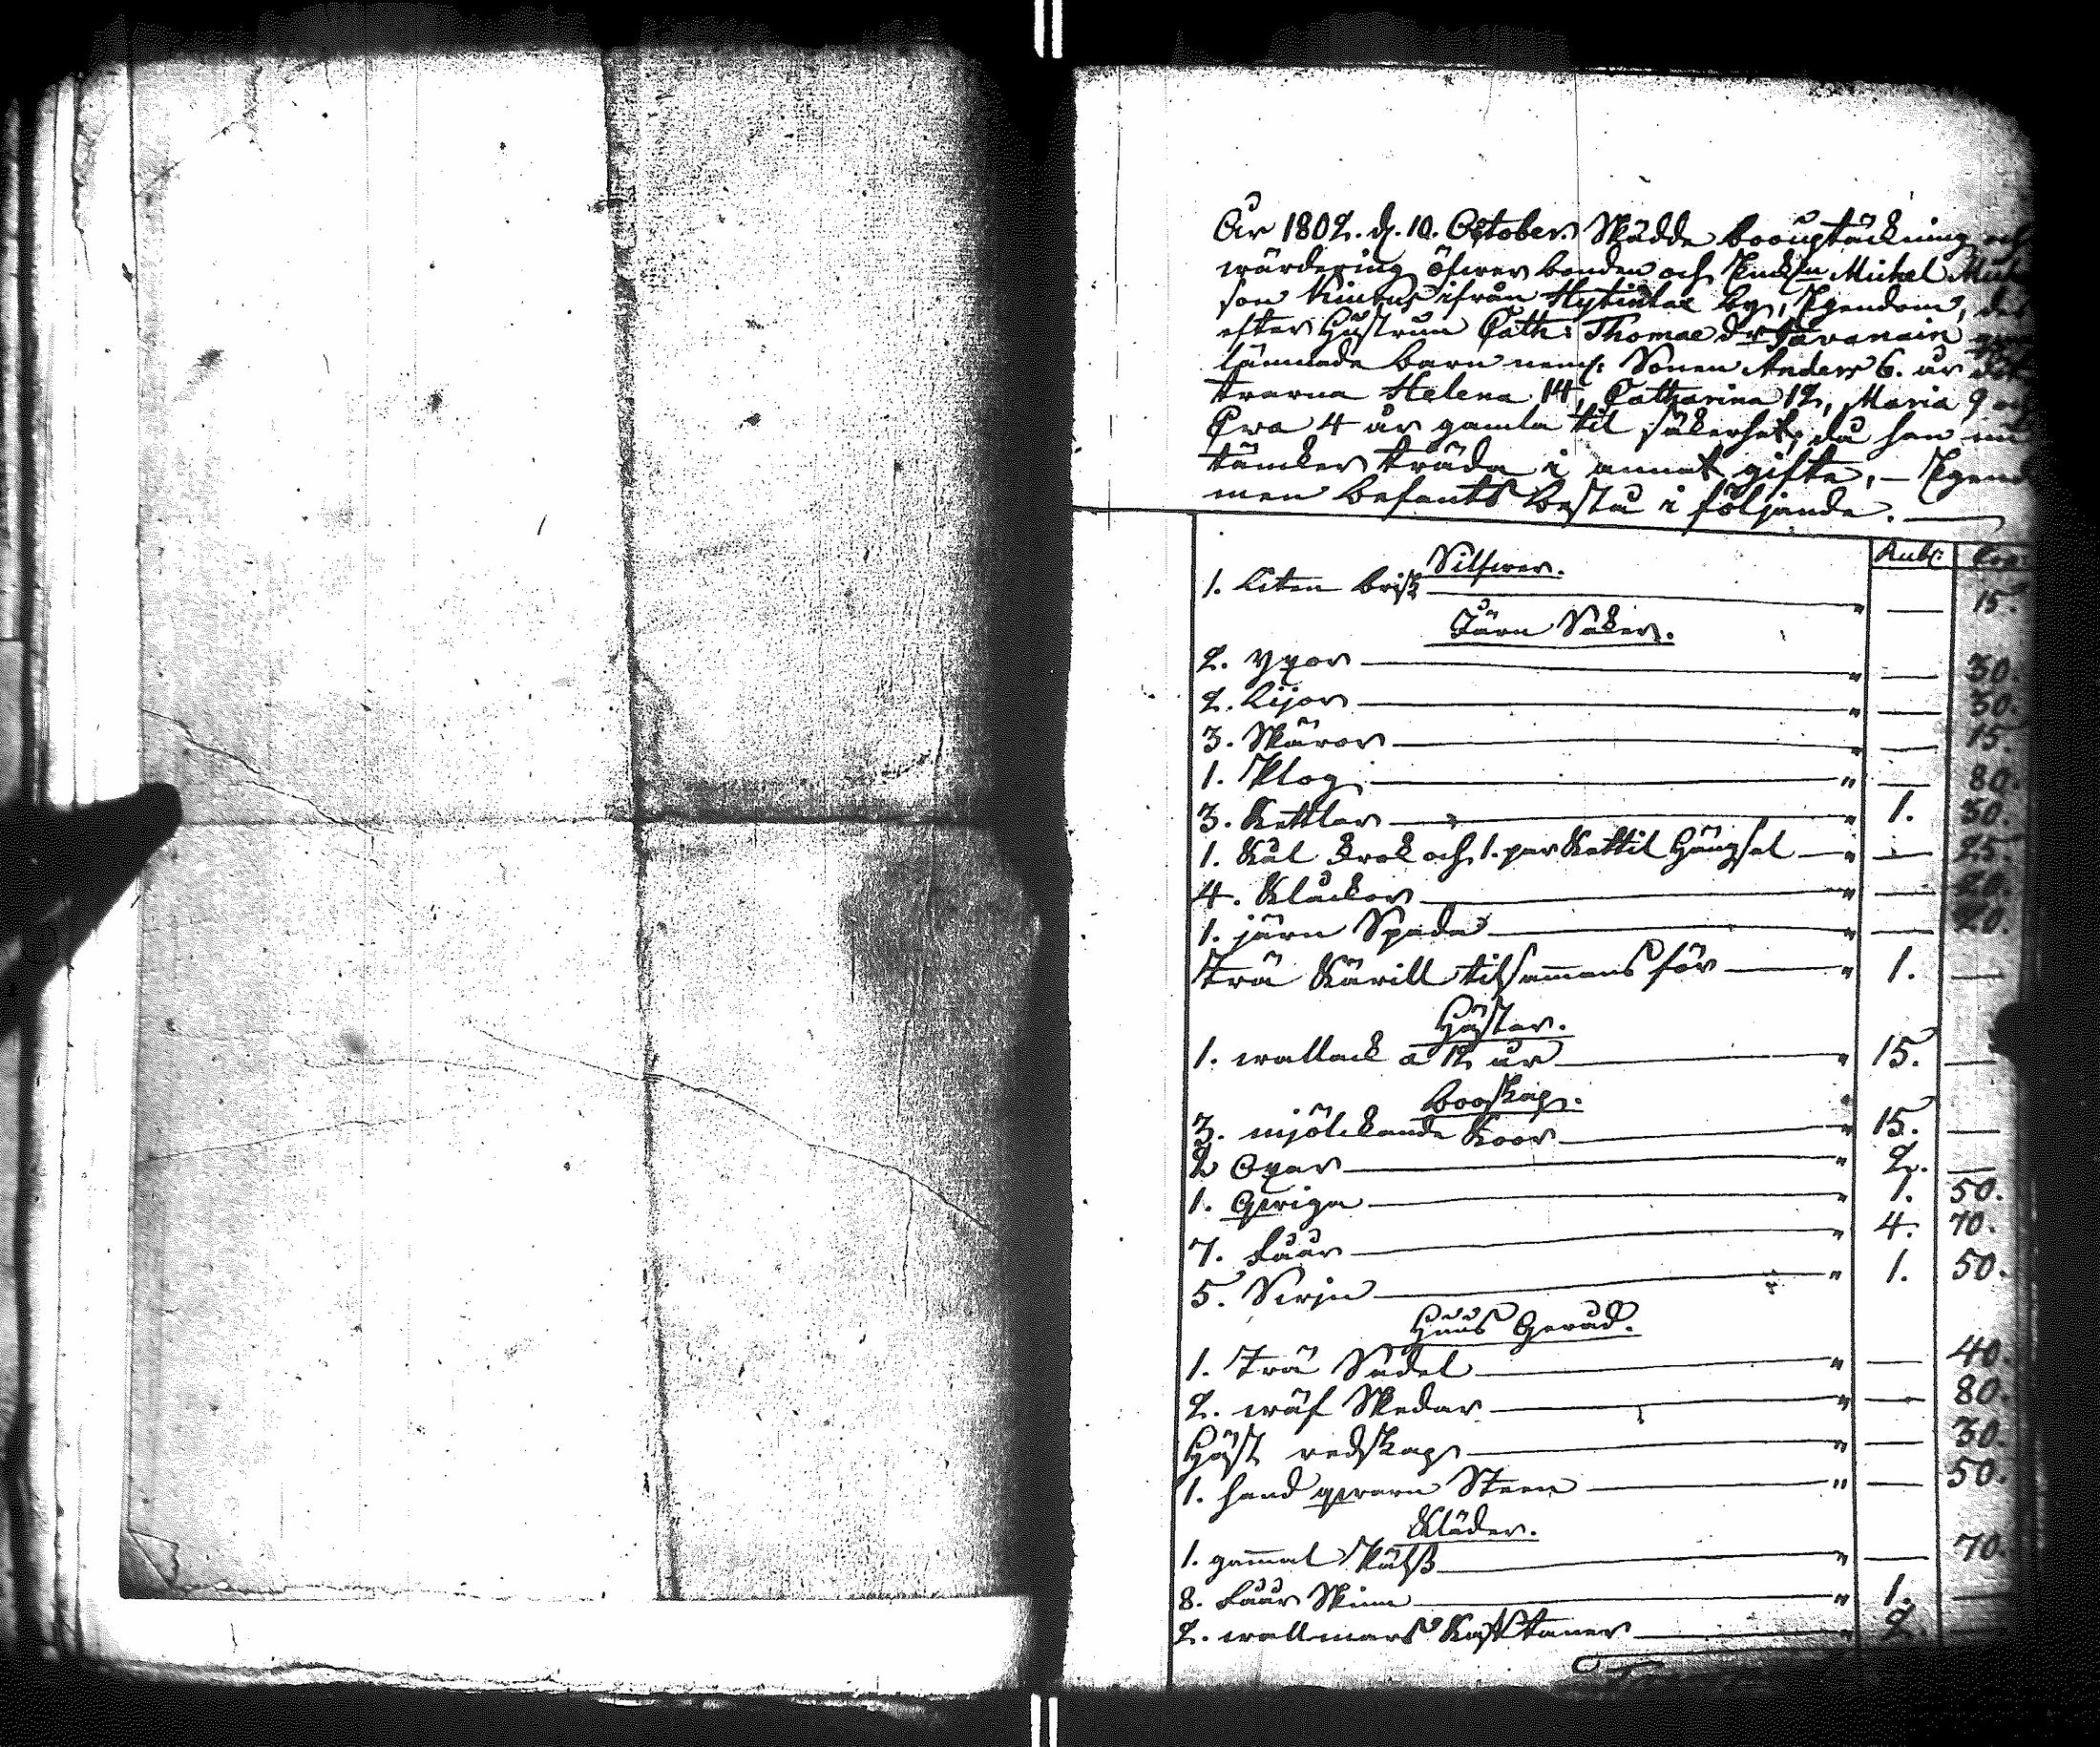 År 1802. d. 10. October. Skädde boouptäckning och
wärdering öfwer bonden och Enkl:n Michel Mich
son Kinnus ifrån Hytinlax by, Egendom, des
efter Hustrun Cath: Thomae dr Tavanain
lämnade barn neml: Sonen Anders 6. år döt
trarna Helena 14, Catharina 12, Maria 9 och
Ewa 4 år gamla til säkerhet, då han nu
tänker träda i annat gifte, — Egend
men befants bestå i följande. —
Rub: Cop:
Silfwer.
1. Liten brisk — " — 15.
Järn Saker.
2. Yxor — " — 30.
2. Lijor — " — 30.
3. Skäror — " — 15.
1. Plog — " — 80.
3. Kettlar — " 1. 30.
1. Kål krok och 1. par Kettil Hängsel — " — 25.
4. Kläckor — " — 20.
1. järn Spada — " — 20.
Trä Kärill tilsammans för — " 1. —
Hästar.
1. wallack a 12 år — " 15. —
booskap.
3. mjölckande Koor — " 15. —
2 Oxar — " 2. —
1. Qwiga — " 1. 50.
7. Fåår — " 4. 70.
5. Swijn — " 1. 50.
Huus Geråd.
1. Trä Sadel — " — 40.
2. wäf Skedar — " — 80.
Häst redskap — " — 30.
1. hand qwarn Steen — " — 50.
Kläder.
1. gammal Pälss — " — 70.
8. Fåår Skinn — " 1. —
2. wallmars Kasttaner — " 2. —